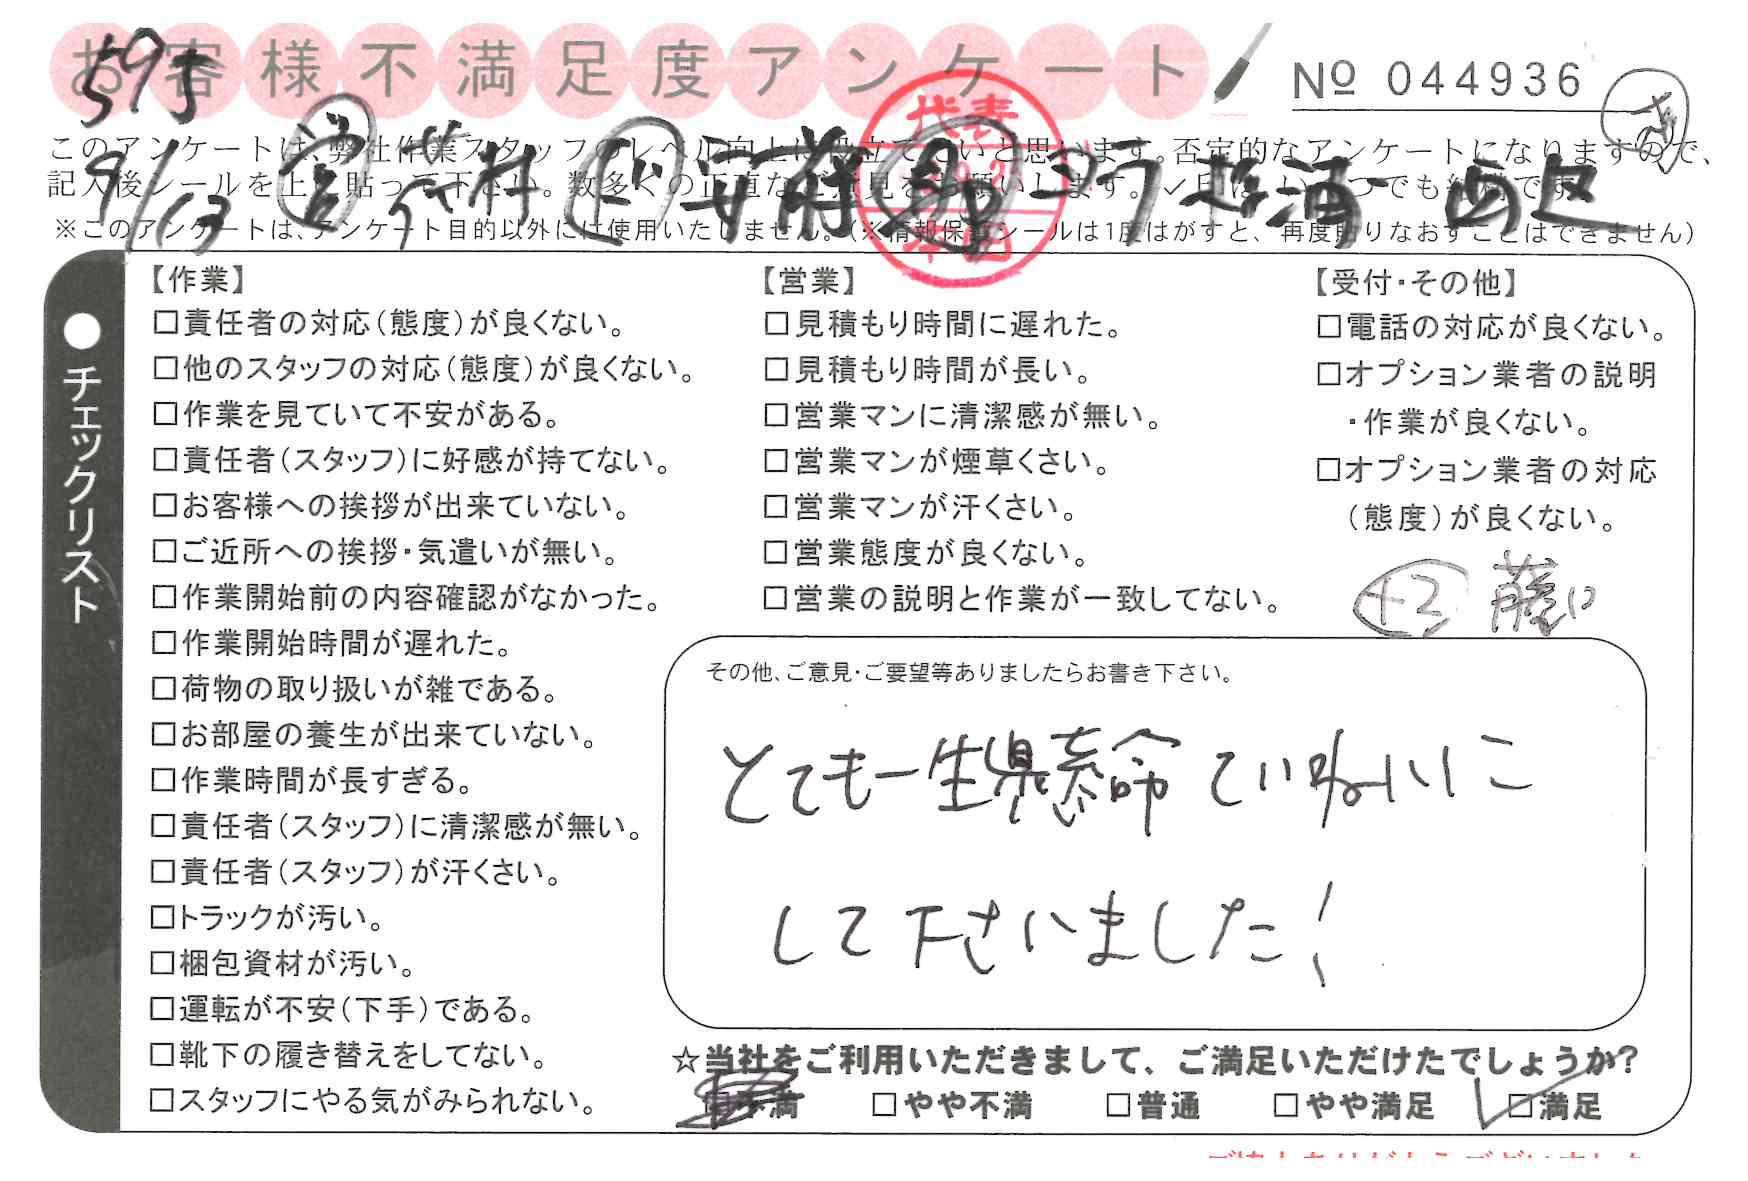 お客様不満足度アンケート
№ 044936
597
このアンケートは、弊社作業スタッフのレベル向上に役立てたいと思います。否定的なアンケートになりますので、
記入後シールを上に貼って下さい。数多くの正直なご意見をお願いします。✓印は、いくつでも結構です。
9/13
代表
※このアンケートは、アンケート目的以外には使用いたしません。(※情報保護シールは1度はがすと、再度貼りなおすことはできません)
●チェックリスト
【作業】
□責任者の対応(態度)が良くない。
□他のスタッフの対応(態度)が良くない。
□作業を見ていて不安がある。
□責任者(スタッフ)に好感が持てない。
□お客様への挨拶が出来ていない。
□ご近所への挨拶・気遣いが無い。
□作業開始前の内容確認がなかった。
□作業開始時間が遅れた。
□荷物の取り扱いが雑である。
□お部屋の養生が出来ていない。
□作業時間が長すぎる。
□責任者(スタッフ)に清潔感が無い。
□責任者(スタッフ)が汗くさい。
□トラックが汚い。
□梱包資材が汚い。
□運転が不安(下手)である。
□靴下の履き替えをしてない。
□スタッフにやる気がみられない。
【営業】
□見積もり時間に遅れた。
□見積もり時間が長い。
□営業マンに清潔感が無い。
□営業マンが煙草くさい。
□営業マンが汗くさい。
□営業態度が良くない。
□営業の説明と作業が一致してない。
【受付・その他】
□電話の対応が良くない。
□オプション業者の説明
・作業が良くない。
□オプション業者の対応
(態度)が良くない。
+2 藤口
その他、ご意見・ご要望等ありましたらお書き下さい。
とても一生懸命ていねいに
して下さいました!
☆当社をご利用いただきまして、ご満足いただけたでしょうか?
□不満 □やや不満 □普通 □やや満足 □満足